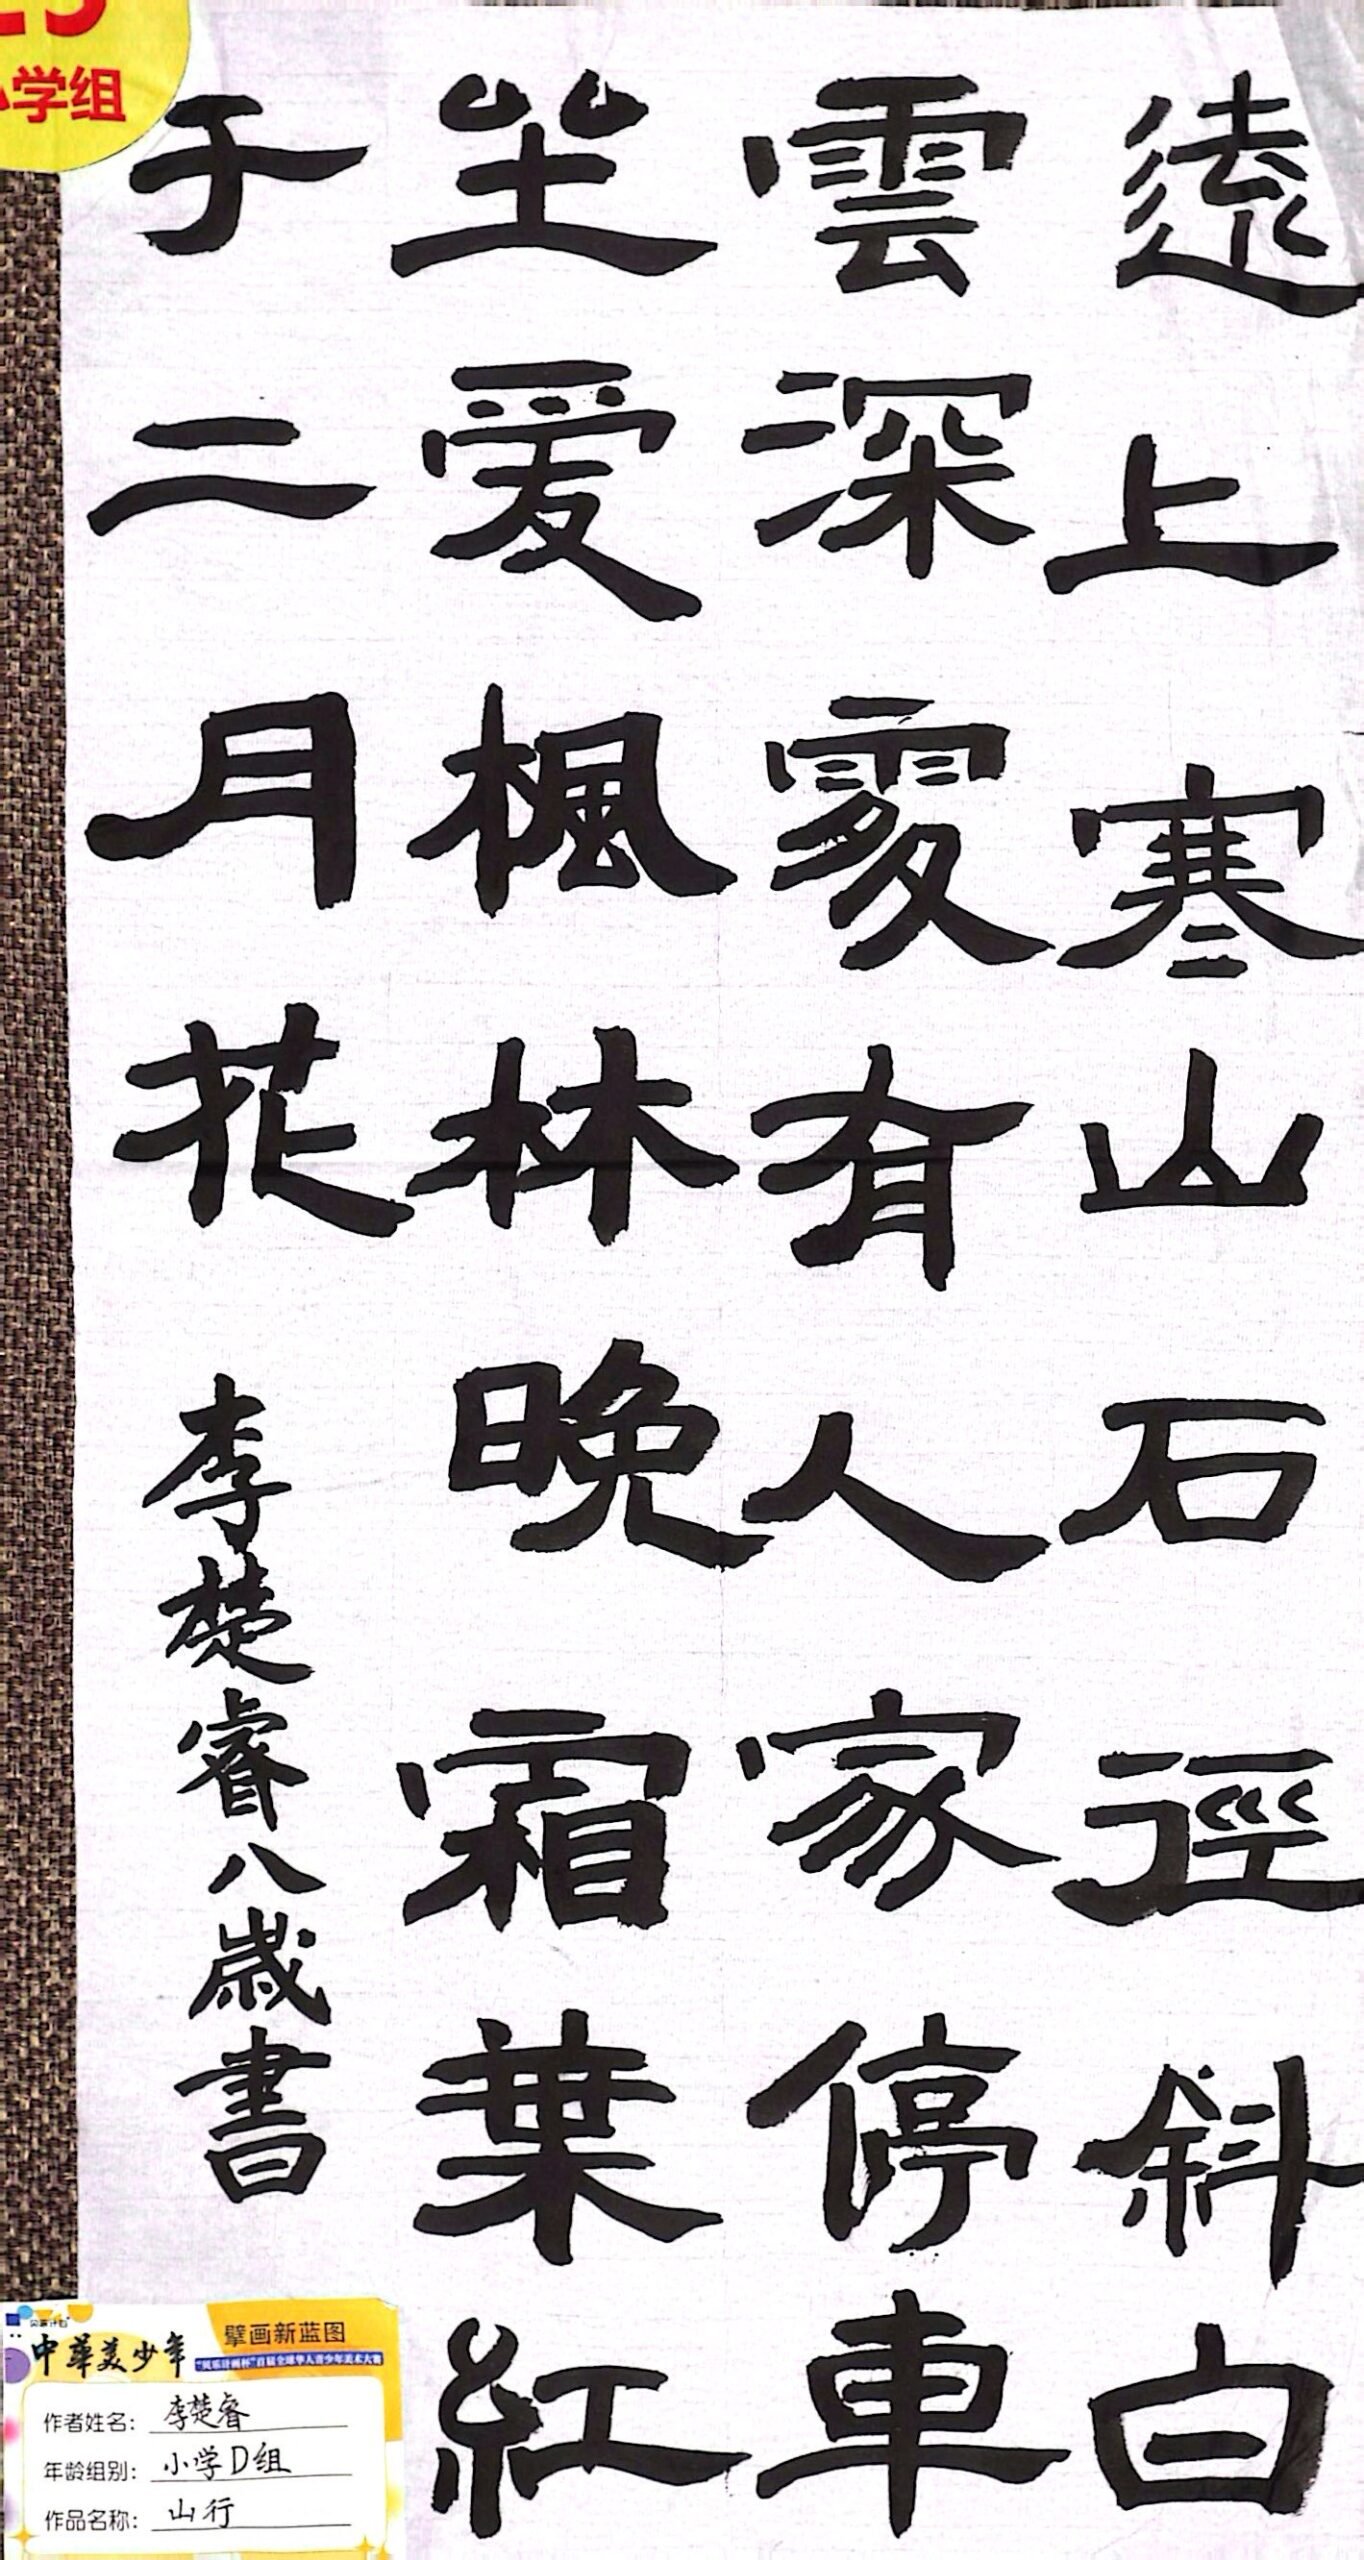 遠上寒山石徑斜白
雲深處有人家停車
坐爱楓林晚霜葉紅
于二月花 李楚睿八歲書
小学组
中華美少年
擘画新蓝图
首届全球华人青少年美术大赛
作者姓名： 李楚睿
年龄组别： 小学D组
作品名称： 山行